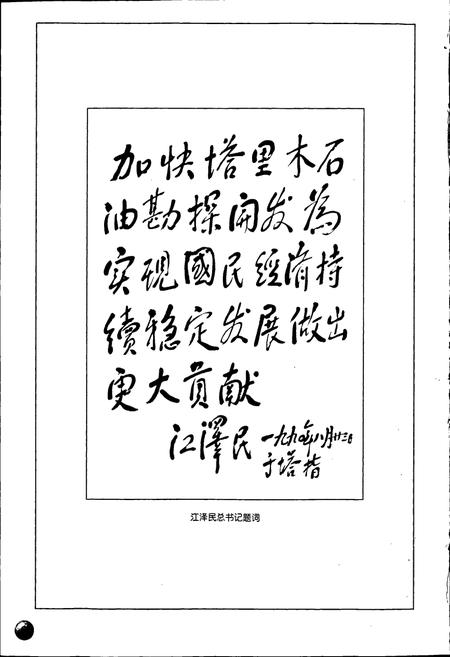 加快塔里木石
油勘探開发為
实現國民經济持
續稳定发展做出
更大貢献
江澤民 一九九〇年八月廿三日
于塔指
江泽民总书记题词